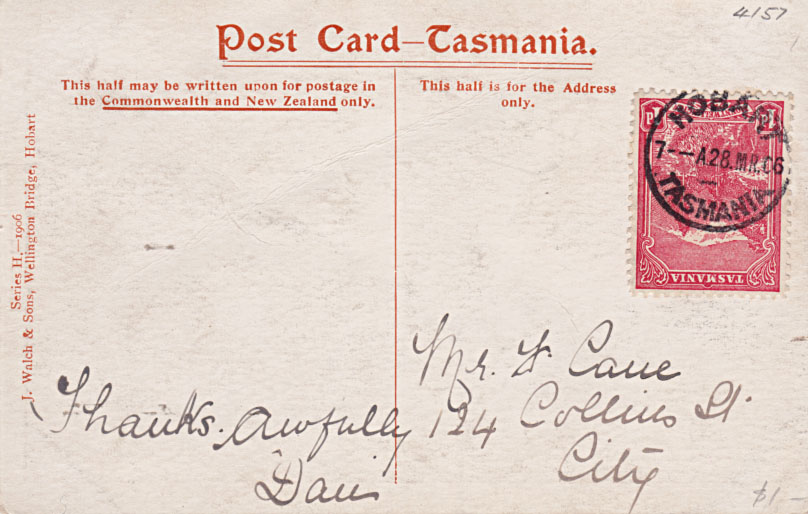 4157
Post Card—Tasmania.
This half may be written upon for postage in
the Commonwealth and New Zealand only.
This half is for the Address
only.
Series H.—1906
J. Walch & Sons, Wellington Bridge, Hobart
HOBART
7--A28.MR.06
TASMANIA
TASMANIA
Mr. F Cane
124 Collins St.
City
Thanks. Awfully
$1-